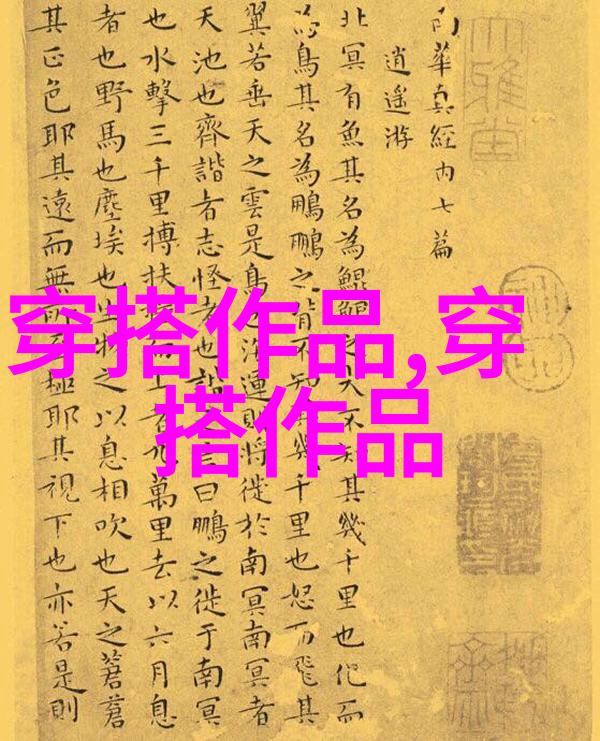 穿搭作品,穿
搭作品
南華真經內七篇
逍遥游
北冥有魚其名為鯤鯤之大不知其幾千里也化而
為鳥其名為鵬鵬之背不知其幾千里也怒而飛其
翼若垂天之雲是鳥也海運則將徙於南冥南冥者
天池也齊諧者志怪者也諧之言曰鵬之徙于南冥
也水擊三千里搏扶搖而上者九萬里去以六月息
者也野馬也塵埃也生物之以息相吹也天之蒼蒼
其正色耶其遠而無所至極耶其視下也亦若是則